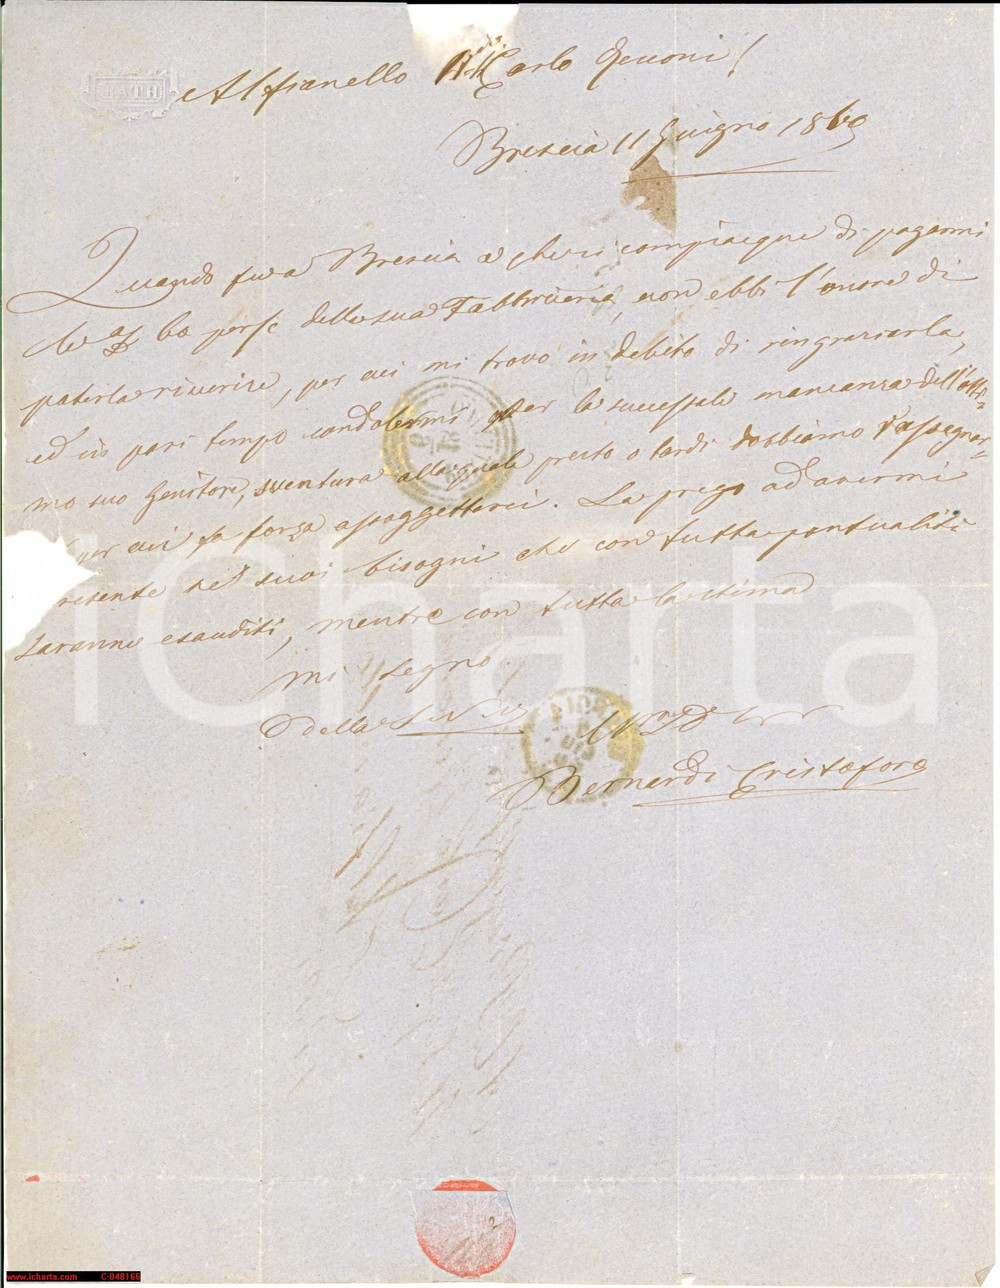 BATH
Alfianello Carlo
Brescia 11 Giugno 1860
Quando fu a Brescia e che si compiacque di pagarmi
le per della sua Fabbriceria, non ebbi l'onore di
poterla riverire, per cui mi trovo in debito di ringraziarla,
ed in pari tempo condolermi per la successale mancanza dell'otti-
mo suo Genitore, sventura alla quale presto o tardi dobbiamo rassegnar-
per cui fa forza assoggetterci. La prego ad avermi
resente ne' suoi bisogni che con tutta pontualità
saranno esauditi, mentre con tutta la stima
mi segno
Della
Bernardi Cristoforo
2
iCharta
www.icharta.com C-048166